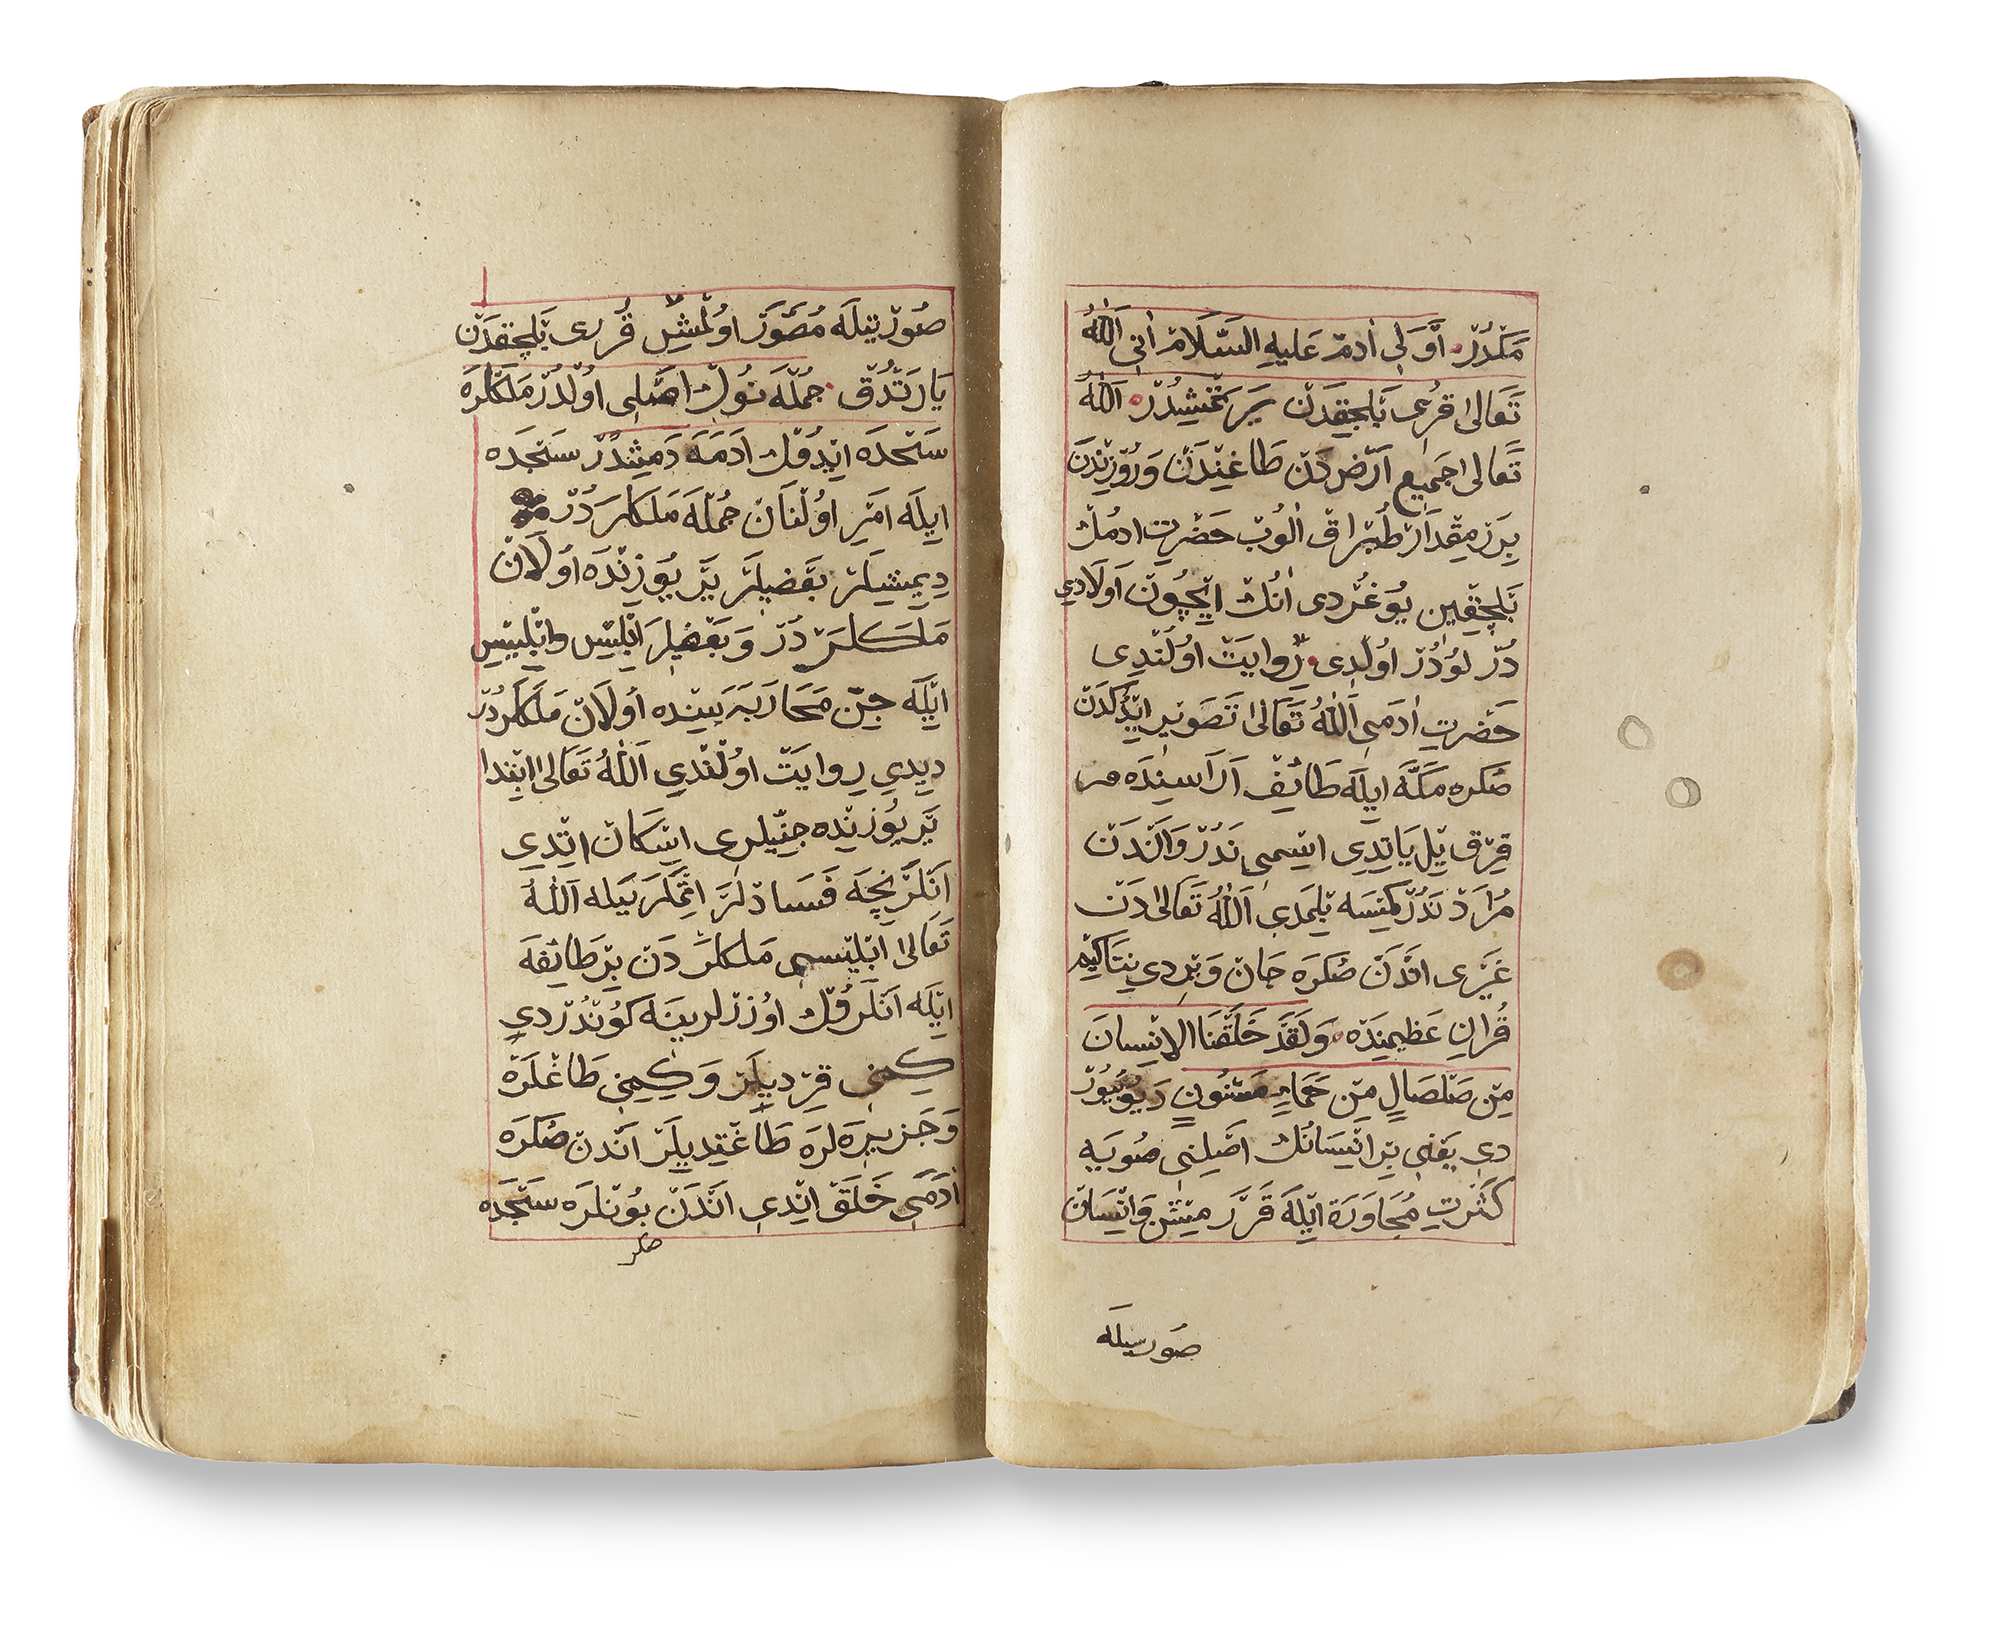 مَكْدُرْ اَوَّلِ اٰدَمْ عَلَيْهِ السَّلَامْ اٰنِی اَللّٰهُ
تَعَالٰی قُرِی بَلْجِقِدَنْ يَرَتْمِشِدُرْ اَللّٰهُ
تَعَالٰی جَمِيعِ اَرْضِ دَنْ طَاغِنْدَنْ وَرُوزِنْدَنْ
بِرَزْ مِقْدَارْ طُبْرَاقْ اٰلُوبْ حَضْرَتِ ادَمُكْ
بَلْچِقِينْ يُوغُرْدی اٰنُكْ اِيچُونْ اَوْلَادِي
دُرْلُو دُرْ اُولْدِی رِوَايَتْ اُولُنْدِی
حَضْرَتِ اٰدَمِی اَللّٰهُ تَعَالٰی تَصْوِيرْ ايتْدُكْدَنْ
صُكْرَه مَكَّه اِيلَه طَائِفْ اَرَاسِنْدَه
قِرْقْ يِلْ يَاتْدِی اِسْمِی نَدُرْ وَاَنْدَنْ
مُرَادْ نَدُرْ كِمْسَه بِلْمَدِی اَللّٰهُ تَعَالٰی دَنْ
غَيْرِی اَنْدَنْ صُكْرَه جَانْ وِيرْدِی نِتَاكِيمْ
قُرْاٰنِ عَظِيمِنْدَه وَلَقَدْ خَلَقْنَا الْاِنْسَانَ
مِنْ صَلْصَالٍ مِنْ حَمَاءٍ مَسْنُونٍ دِيُو بُيُورْ
دِی يَعْنِی بِزْ اِنْسَانُكْ اَصْلِنِی صُويَه
كَثْرَتِ مُجَاوَرَة اِيلَه قَرَرْمِشْ وَاِنْسَانْ
صورتيله
صُورَتِيلَه مُصَوَّرْ اُولْمِشْ قُرُی بَلْچِقْدَنْ
يَارَتْدُقْ جُمْلَه نُوكْ اَصْلِی اُولْدُرْ مَلَكْلَرَه
سَجْدَه اِيدُوكْ اٰدَمَه دَمِشْدُرْ سَجْدَه
اِيلَه اَمْرِ اُولُنَانْ جُمْلَه مَلَكْلَرْ دُرْ
دِيمِشْلَرْ بَعْضِيلَرْ يَرْ يُوزِنْدَه اُولَانْ
مَلَكْلَرْ دُرْ وَبَعْضِلَرْ اِبْلِيسْ وَاِبْلِيسْ
اِيلَه جِنْ مُحَارَبَه سِنْدَه اُولَانْ مَلَكْلَرْ دُرْ
دِيدِي رِوَايَتْ اُولُنْدِي اَللّٰهُ تَعَالٰی اِبْتِدَا
يَرْ يُوزِنْدَه جِنِّيلَرِی اِسْكَانْ اِتْدِي
اَنْلَرْ نِچَه فَسَادْلَرْ اِتْمَكْلَرِيلَه اَللّٰهُ
تَعَالٰی اِبْلِيسِی مَلَكْلَرْ دَنْ بِرْ طَائِفَه
اِيلَه اَنْلَرُكْ اُوزَرْلَرِينَه كُونْدُرْدِي
كِيمِنِی قِرْدِيلَرْ وَكِيمِنِی طَاغْلَرَه
وَجَزِيرَه لَرَه طَاغِتْدِيلَرْ اَنْدَنْ صُكْرَه
اٰدَمِی خَلَقْ اِتْدِی اَنْدَنْ بُونْلَرَه سَجْدَه
صكر